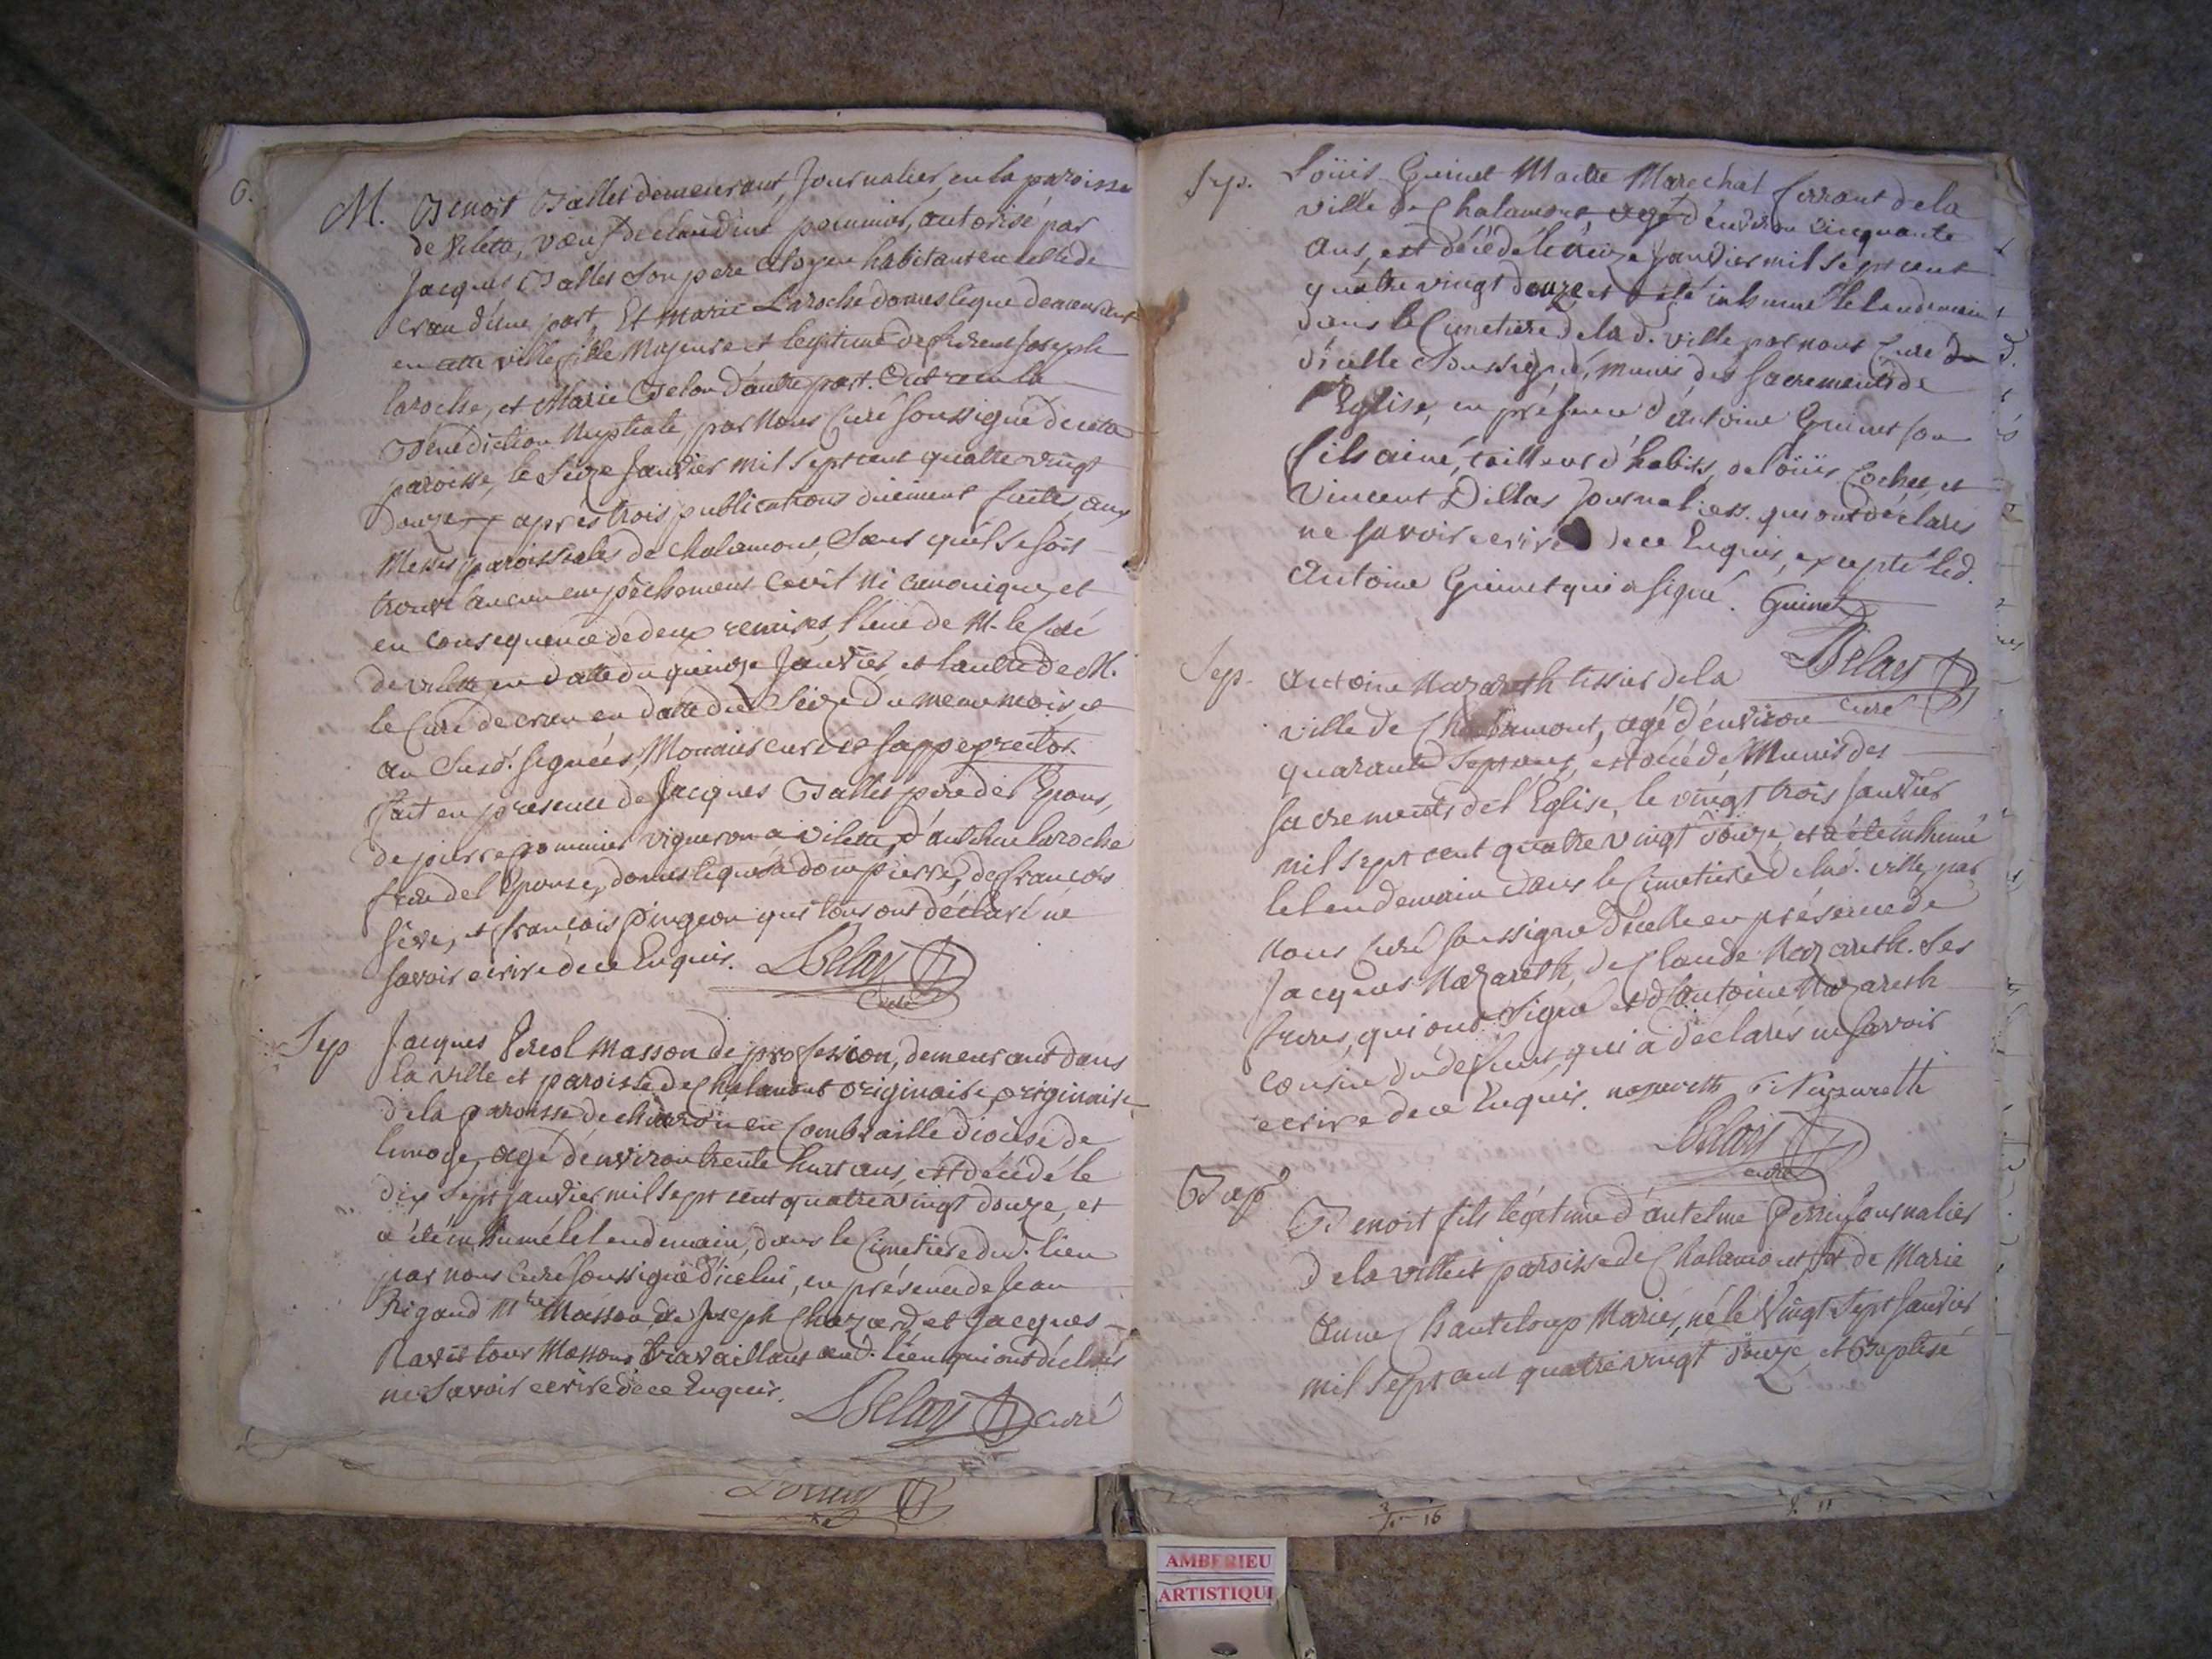 6.
M. Benoit Ballet demeurant, Journalier, en la paroisse
de Vilette, voeuf de claudine pommier, autorisé par
Jacques Ballet Son pere Citoyen habitant en celle de
cran d'une part Et Marie Laroche domestique demeurant
en cette ville fille Majeure et legitime de Joseph
laroche, et Marie Belon d'autre part. Ont recu la
Bénédiction Nuptiale, par Nous Curé soussigné de cette
paroisse, le Seize Janvier mil sept cent quatre vingt
Douze après trois publications duement faites, aux
Messes paroissiales de chalamont, Sans qu'il se soit
trouvé aucun empêchement Civil ni canonique, et
en consequence de deux remises, l'une de M. le Curé
de vilette en datte du quinze Janvier, et l'autre de M.
le Curé de cran en datte du Seize du meme mois, et
an Susd. signées, curé
Fait en presence de Jacques Ballet pere de l'Epoux,
de pierre pommier vigneron a vilette, d'antelme laroche
frere de l'Epouse, domestique à dompierre, de françois
séve, et françois pingeon qui tous ont déclaré ne
savoir ecrire de ce Enquis. Belay
Curé
Sep Jacques Masson de profession, demeurant dans
la ville et paroisse de Chalamont originaire, originaire
de la paroisse de en Combraille diocèse de
limoge, agé d'environ trente huit ans, est décédé le
dix sept Janvier mil sept cent quatre vingt douze, et
a été inhumé le lendemain, dans le Cimetiere dud. lieu
par nous Curé soussigné d'icelui, en présence de Jean
Rigaud Mtre Masson de Joseph Chazard et Jacques
Ravet tous Massons travaillant aud. lieu qui ont déclarés
ne savoir ecrire de ce Enquis.
Belay curé
Sep. Loüis Guinet Maitre Marechal ferrant de la
ville de Chalamont agé d'environ Cinquante
ans, est décédé le Janvier mil sept cent
quatre vingt douze et a été inhumé le lendemain
dans le Cimetiere de lad. ville par nous Curé
d'icelle Soussigné, munis des Sacrements de
l'Eglise, en présence d'Antoine Guinet son
fils ainé, tailleur d'habits, de loüis Cochet, et
Vincent Dillas Journaliers. qui ont déclarés
ne savoir ecrire de ce Enquis, excepté led.
Antoine Guinet qui a signé. Guinet
Belay
curé
Sep. Antoine Nazareth tissier de la
ville de Chalamont, agé d'environ
quarante Sept ans, est décédé, Munis des
Sacrements de l'Eglise, le vingt trois Janvier
mil sept cent quatre vingt douze, et a été inhumé
le lendemain dans le Cimetiere de lad. ville, par
nous Curé soussigné d'icelle en présence de
Jacques Nazareth, de Claude Nazareth. Ses
freres, qui ont Signé et d'Antoine Nazareth
cousin du defunt, qui a déclarés ne savoir
ecrire de ce Enquis. nazareth Nazareth
Belay
curé
Bap. Benoit fils légitime d'antelme Perrin Journalier
de la ville et paroisse de Chalamont et de Marie
Anne Chanteloup Mariés, né le Vingt Sept Janvier
mil sept cent quatre vingt douze et Baptisé
16
AMBERIEU
ARTISTIQUE